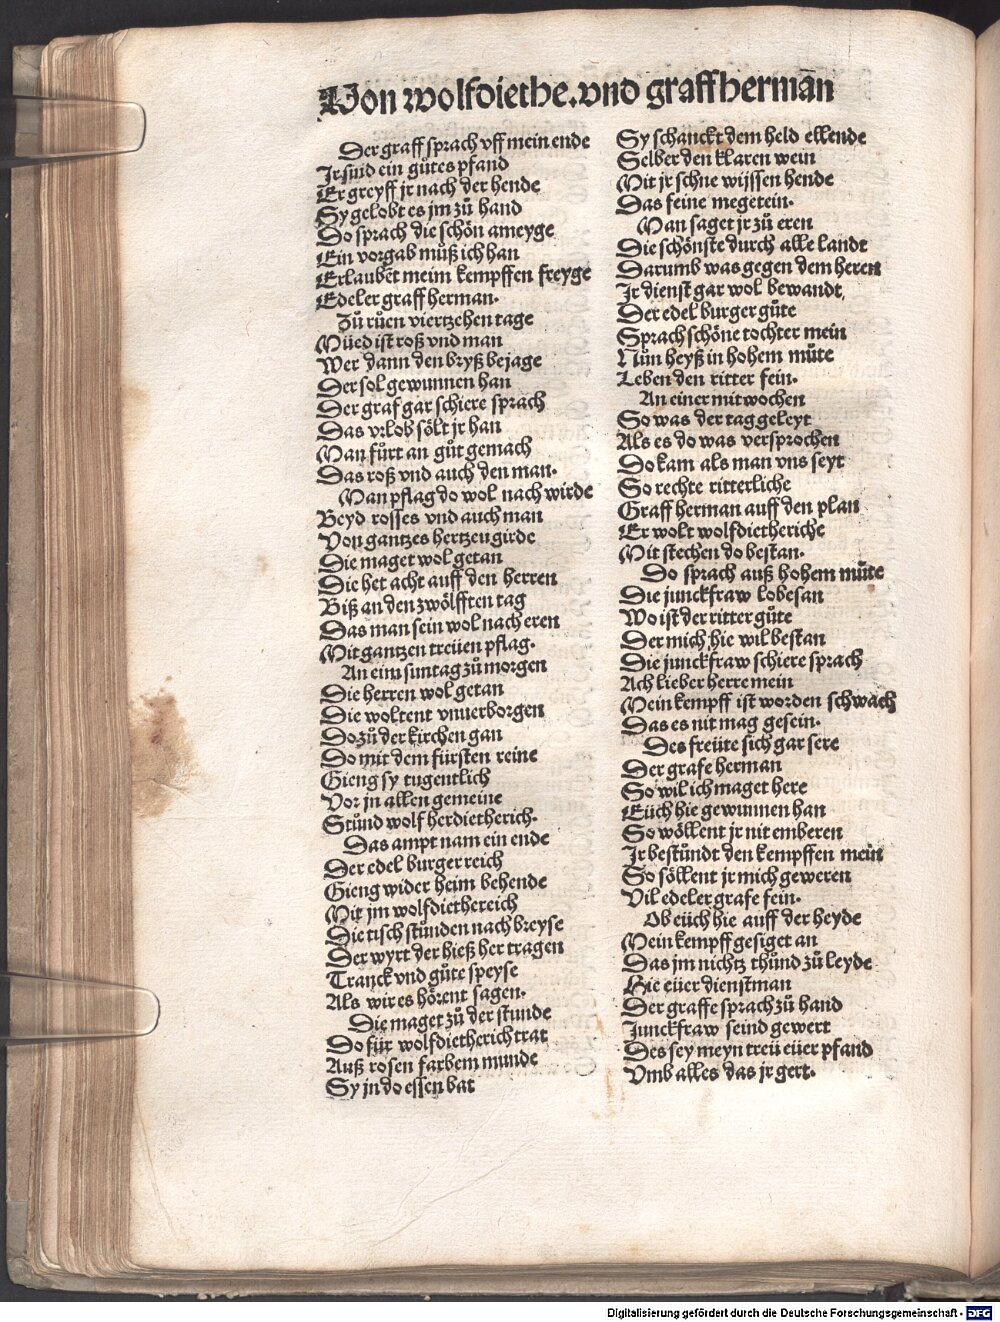 Von wolfdiethe.vnd graff herman̄
Der graff sprach vff mein ende
Ir sind ein gůtes pfand
Er greyff jr nach der hende
Sy gelobt es jm zů hand
Do sprach die schön ameyge
Ein vorgab můß ich han
Erlaubēt meim kempffen freyge
Edeler graff herman.
Zů růen viertzehen tage
Müed ist roß vnd man
Wer dann den bryß bejage
Der sol gewunnen han
Der graf gar schiere sprach
Das vrlob sölt jr han
Man fůrt an gůt gemach
Das roß vnd auch den man.
Man pflag do wol nach wirde
Beyd rosses vnd auch man
Von gantzes hertzen girde
Die maget wol getan
Die het acht auff den herren
Biß an den zwölfften tag
Das man sein wol nach eren
Mit gantzen treüen pflag.
An eim suntag zů morgen
Die herren wol getan
Die woltent vnuerborgen
Do zů der kirchen gan
Do mit dem fürsten reine
Gieng sy tugentlich
Vor jn allen gemeine
Stůnd wolf herdietherich.
Das ampt nam ein ende
Der edel burger reich
Gieng wider heim behende
Mit jm wolfdiethereich
Die tisch stůnden nach breyse
Der wyrt der hieß her tragen
Tranck vnd gůte speyse
Als wir es hörent sagen.
Die maget zů der stunde
Do für wolfdietherich trat
Auß rosen farbem munde
Sy jn do essen bat
Sy schanckt dem held ellende
Selber den klaren wein
Mit jr schne wijssen hende
Das feine megetein.
Man saget jr zů eren
Die schönste durch alle landt
Darumb was gegen dem heren
Ir dienst gar wol bewandt,
Der edel burger gůte
Sprach schöne tochter mein
Nůn heyß in hohem můte
Leben den ritter fein.
An einer mitwochen
So was der tag geleyt
Als es do was versprochen
Do kam als man vns seyt
So rechte ritterliche
Graff herman auff den plan
Er wolt wolfdietheriche
Mit stechen do bestan.
Do sprach auß hohem můte
Die junckfraw lobesan
Wo ist der ritter gůte
Der mich hie wil bestan
Die junckfraw schiere sprach
Ach lieber herre mein
Mein kempff ist worden schwach
Das es nit mag gesein.
Des freüte sich gar sere
Der grafe herman
So wil ich maget here
Eüch hie gewunnen han
So wöllent jr nit emberen
Ir bestůndt den kempffen mein
So söllent jr mich geweren
Vil edeler grafe fein.
Ob eüch hie auff der heyde
Mein kempff gesiget an
Das jm nichtz thůnd zů leyde
Hie eüer dienstman
Der graffe sprach zů hand
Junckfraw seind gewert
Des sey meyn treü eüer pfand
Vmb alles das jr gert.
Digitalisierung gefördert durch die Deutsche Forschungsgemeinschaft - DFG